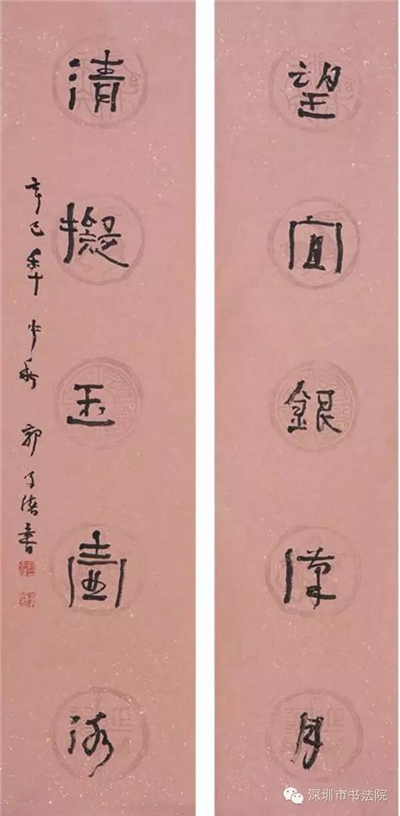 望宜銀漢月
清擬玉壺冰
辛巳年
郭子緒書
深圳市书法院